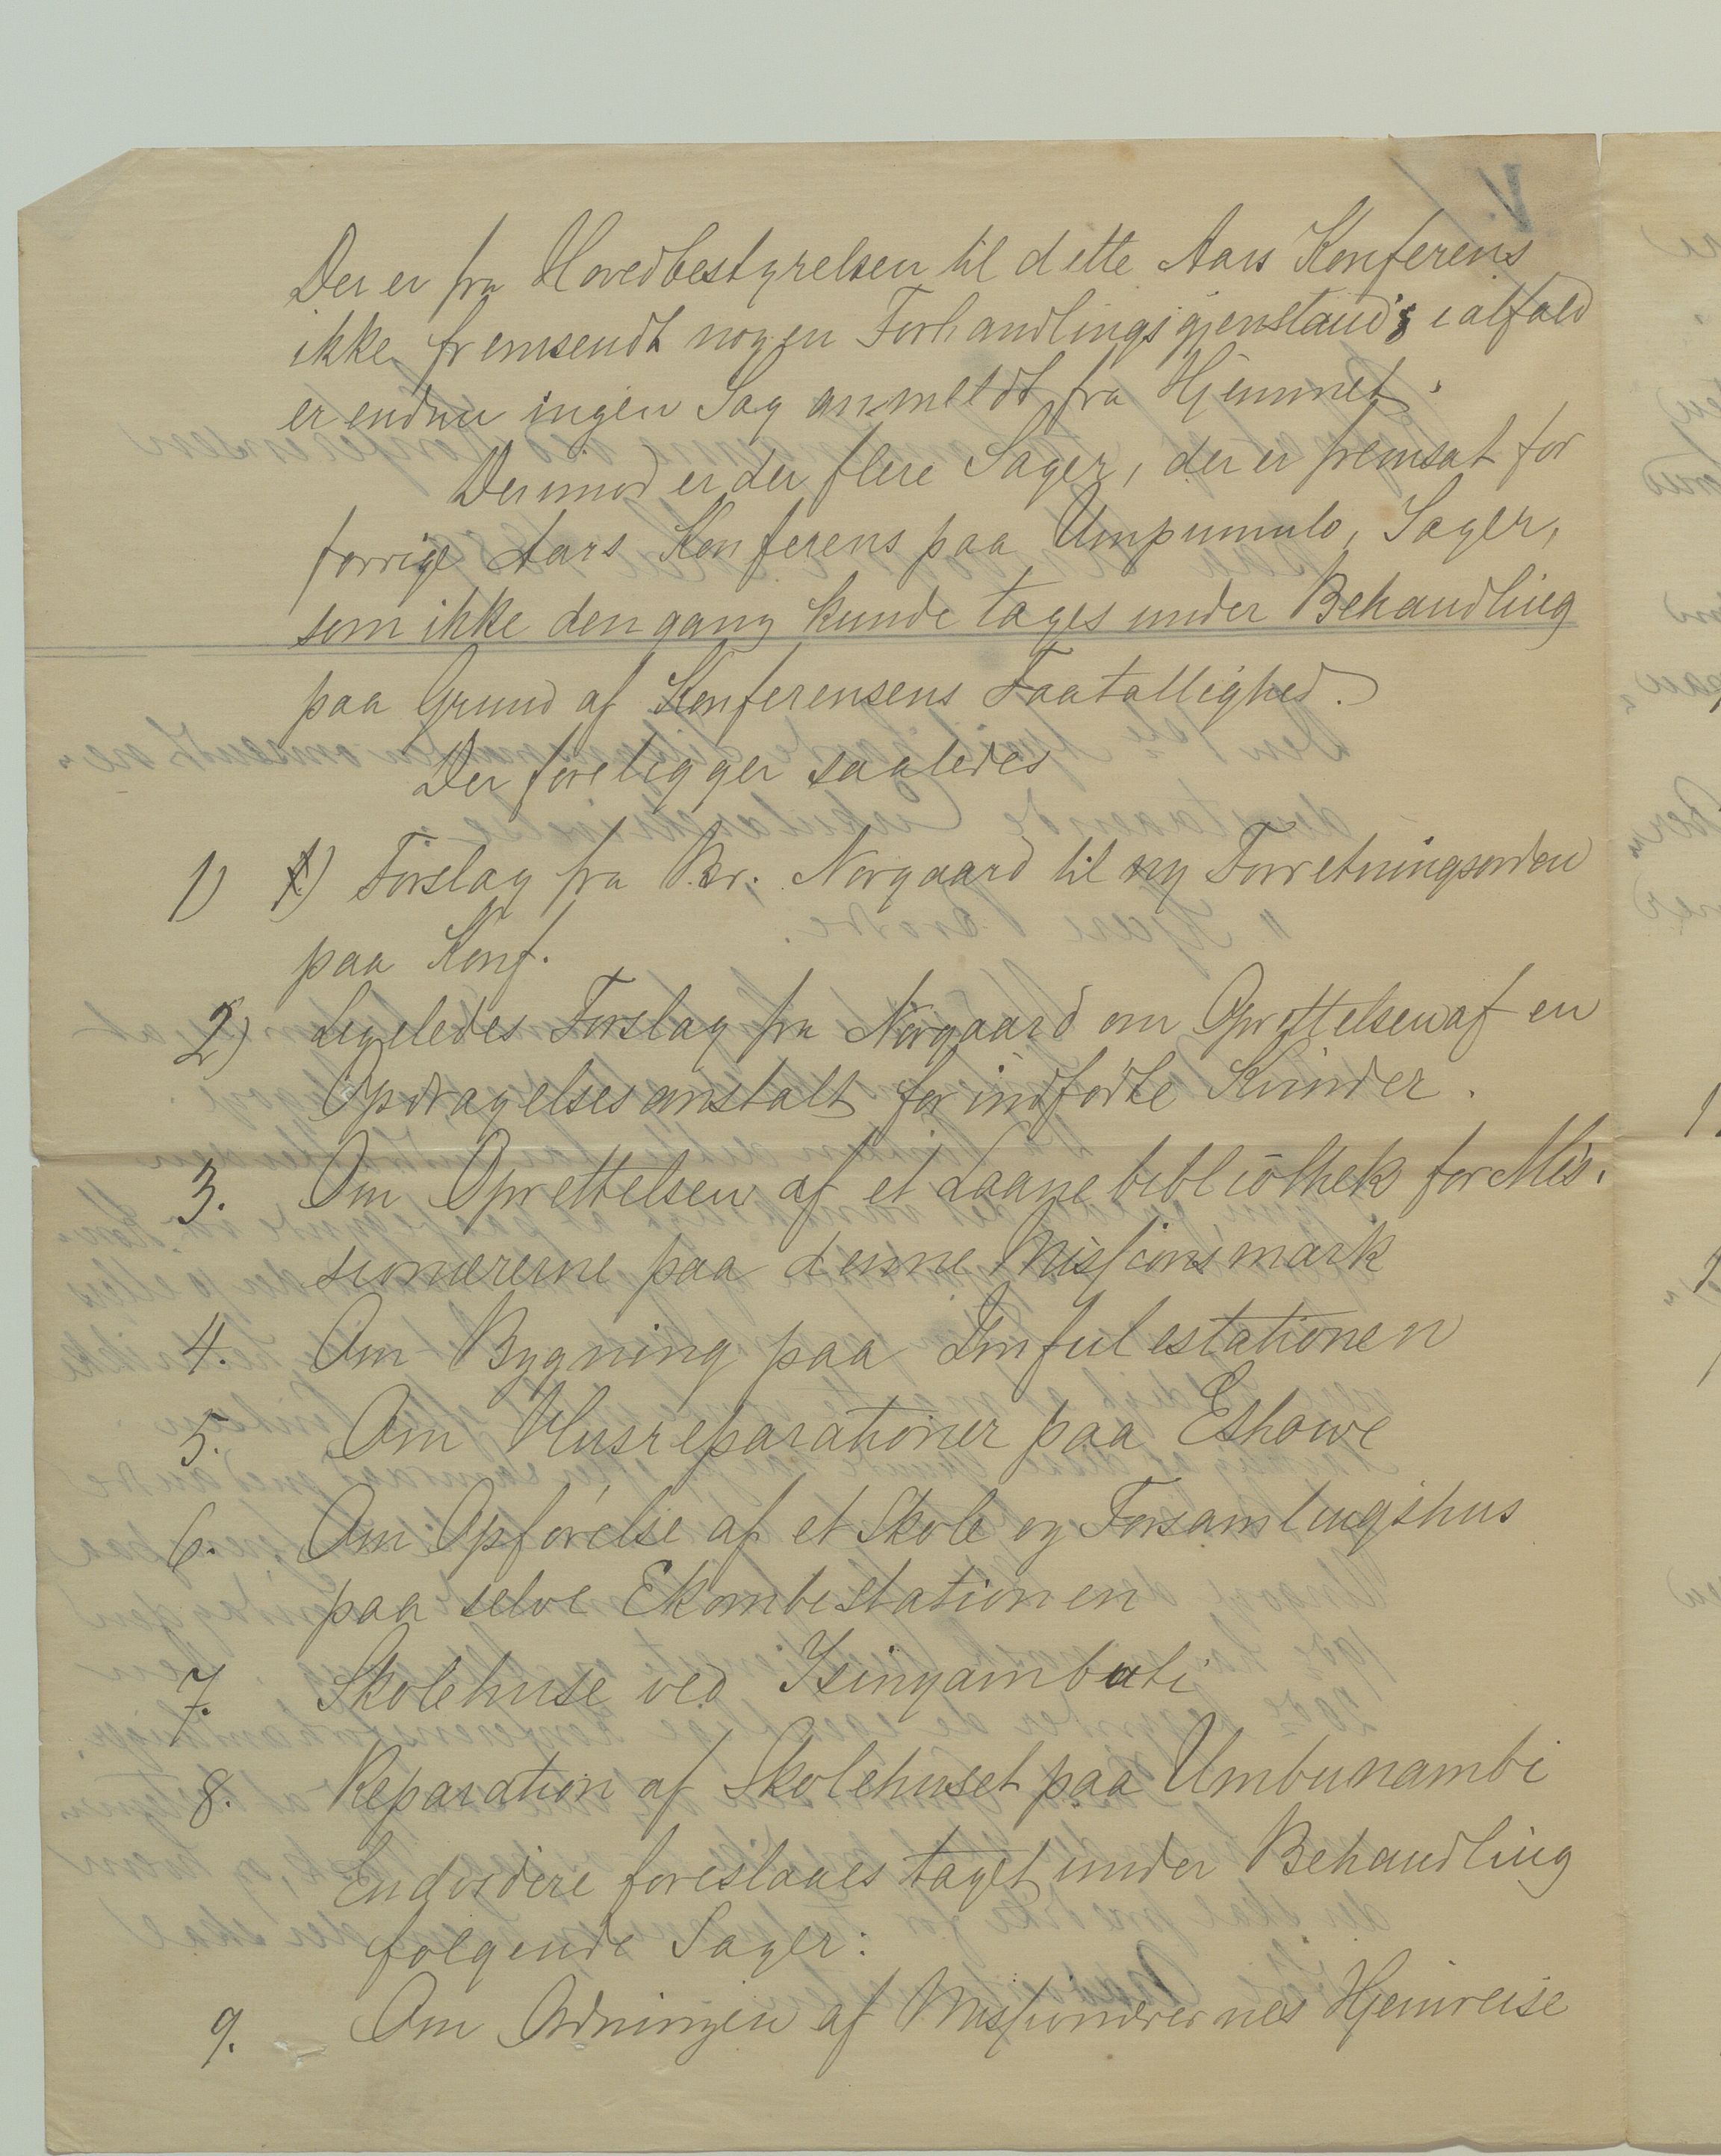 Der er fra Hovedbestyrelsen til dette Aars Konferens
ikke fremsendt nogen Forhandlingsgjenstand; ialfald
er endnu ingen Sag anmeldt fra Hjemmet.
Derimod er der flere Sager, der er fremsat for
forrige Aars Konferens paa Umpumulo, Sager,
som ikke dengang kunde tages under Behandling
paa Grund af Konferensens Faatallighed.
Der foreligger saaledes
1) 1) Forslag fra Br. Norgaard til ny Forretningsorden
paa Konf.
2) Ligeledes Forslag fra Norgaard om Oprettelsen af en
Opdragelsesanstalt for indfødte Kvinder.
3. Om Oprettelsen af et Laanebibliothek for Mis-
sionærerne paa denne Missionsmark
4. Om Bygning paa Imfulestationen
5. Om Husreparationer paa Eshowe
6. Om Opførelse af et Skole og Forsamlingshus
paa selve Ekombestationen
7. Skolehuse ved Isinyambuti
8. Reparation af Skolehuset paa Umbunambi
Endvidere foreslaaes taget under Behandling
følgende Sager:
9. Om Ordningen af Missionærernes Hjemreise